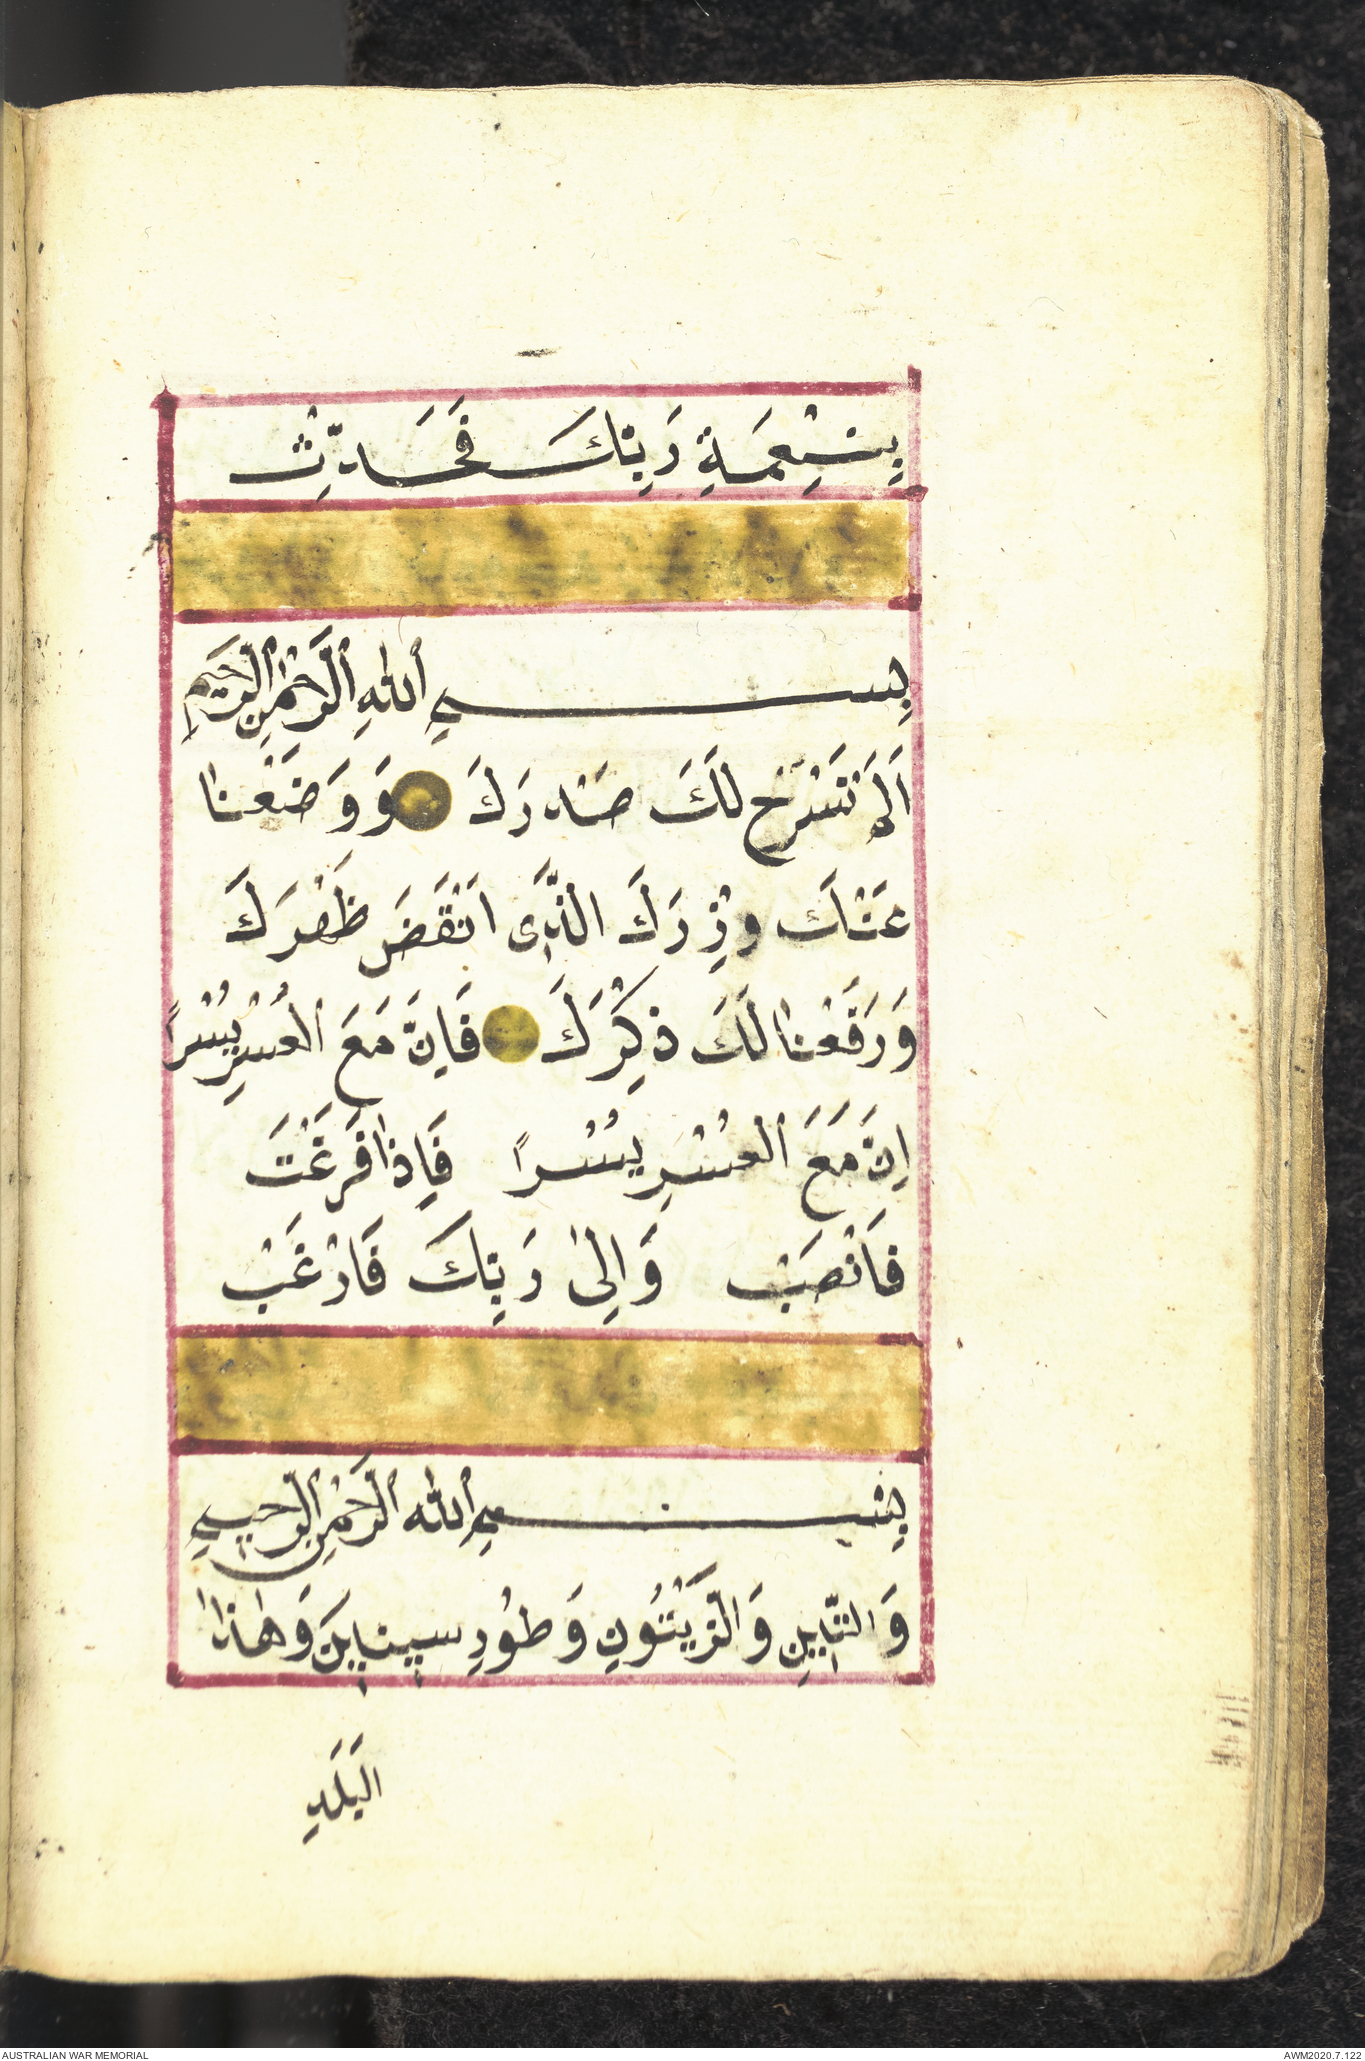 بِنِعْمَةِ رَبِّكَ فَحَدِّثْ
بِسمِ ٱللهِ ٱلرَّحْمٰنِ ٱلرَّحِيمِ
اَلَمْ نَشْرَحْ لَكَ صَدْرَكَ وَ وَضَعْنٰا
عَنْكَ وِزْرَكَ الَّذِى اَنْقَضَ ظَهْرَكَ
وَرَفَعْنٰا لَكَ ذِكْرَكَ فَاِنَّ مَعَ الْعُسْرِ يُسْرًا
اِنَّ مَعَ الْعُسْرِ يُسْرًا فَاِذٰا فَرَغْتَ
فَانْصَبْ وَاِلىٰ رَبِّكَ فَارْغَبْ
بِسْمِ ٱللّٰه ٱلرَّحْمٰنِ ٱلرَّحيمِ
وَالتِّينِ وَالزَّيْتُونِ وَطُورِ سينينَ وَهٰذَا
البَلَدِ
AUSTRALIAN WAR MEMORIAL
AWM2020.7.122